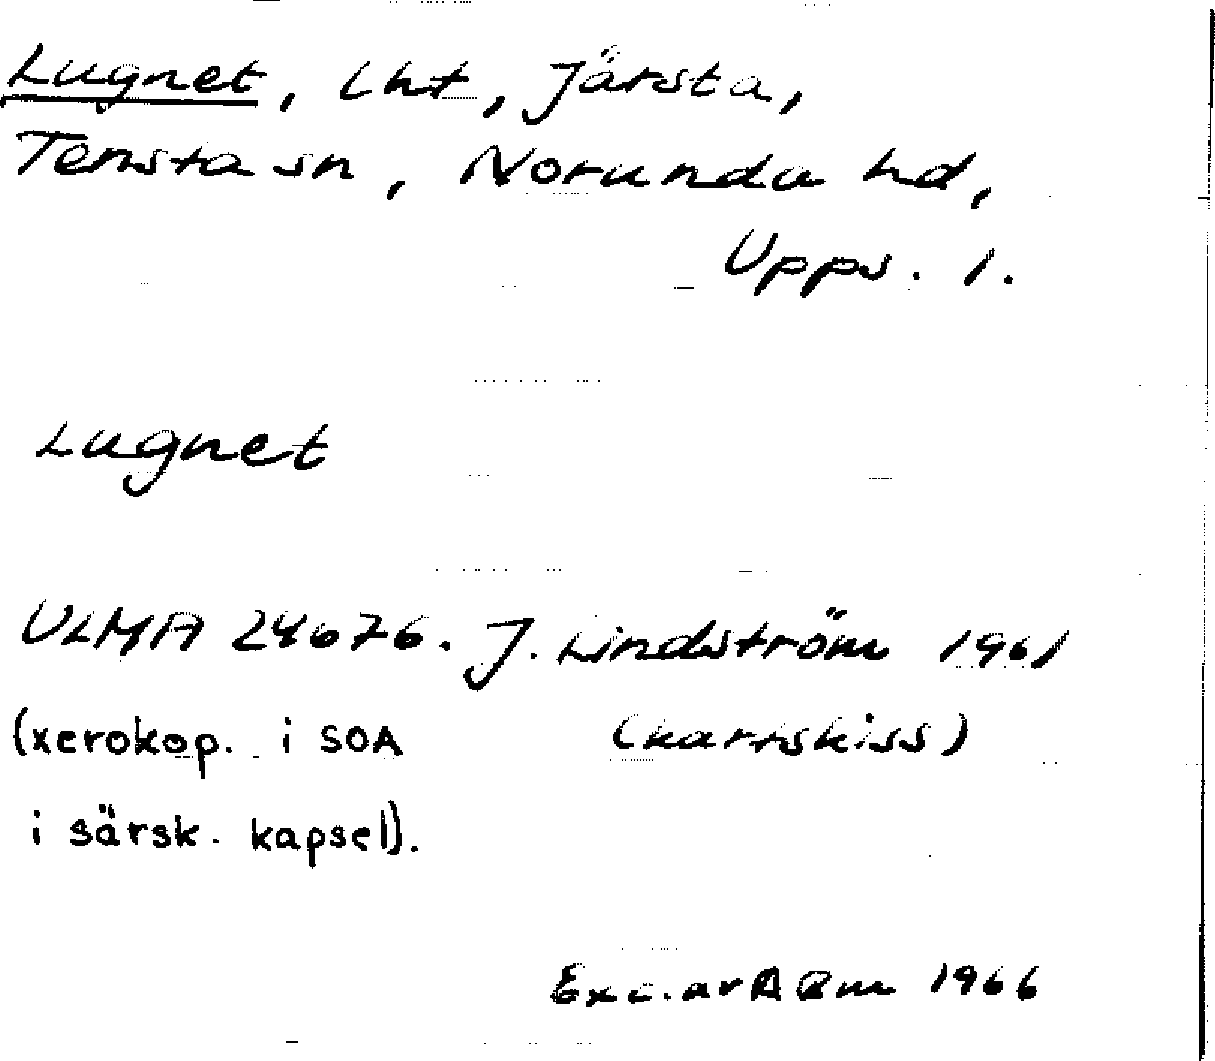 Lugnet, Lht, Järsta,
Tensta sn, Norunda hd,
Upps. l.
Lugnet
ULMA 24676. J. Lindström 1961
(xerokop. i SOA (kartskiss)
i särsk. kapsel).
Exc. av 1966